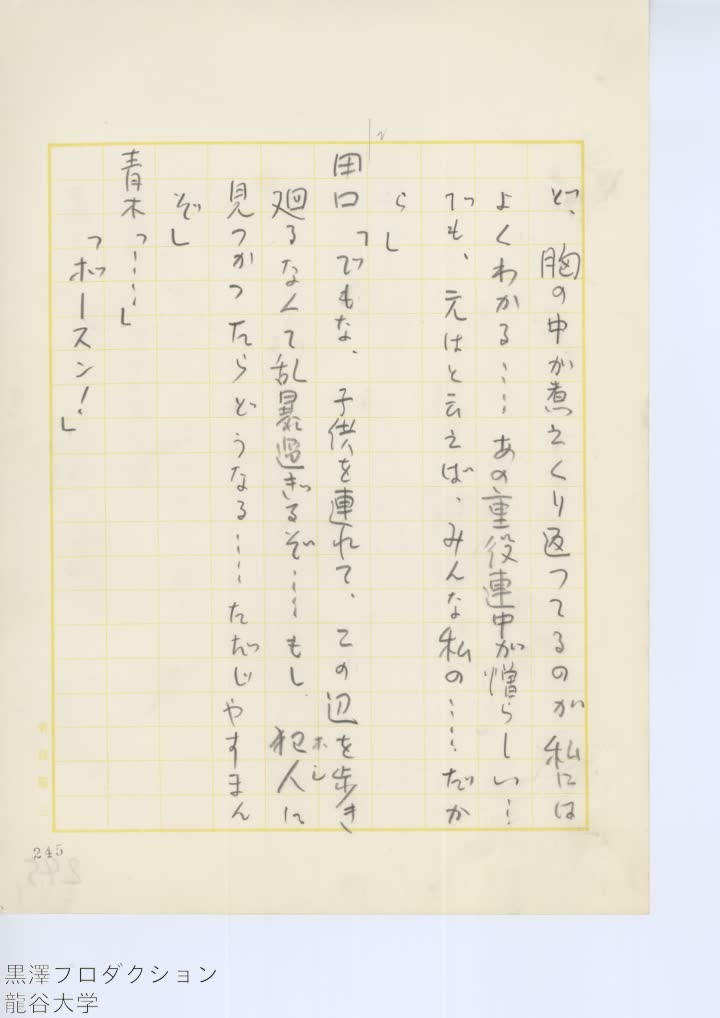 と、胸の中が煮えくり返つてるのが私には
よくわかる……あの重役連中が憎らしい…
でも、元はと云えば、みんな私の……だか
ら」
田口「でもな、子供を連れて、この辺を歩き
廻るなんて乱暴過ぎるぞ……もし、犯人に
ホシ
見つかつたらどうなる……ただじやすまん
ぞ」
青木「……」
「ボースン！」
245
黒澤プロダクション
龍谷大学